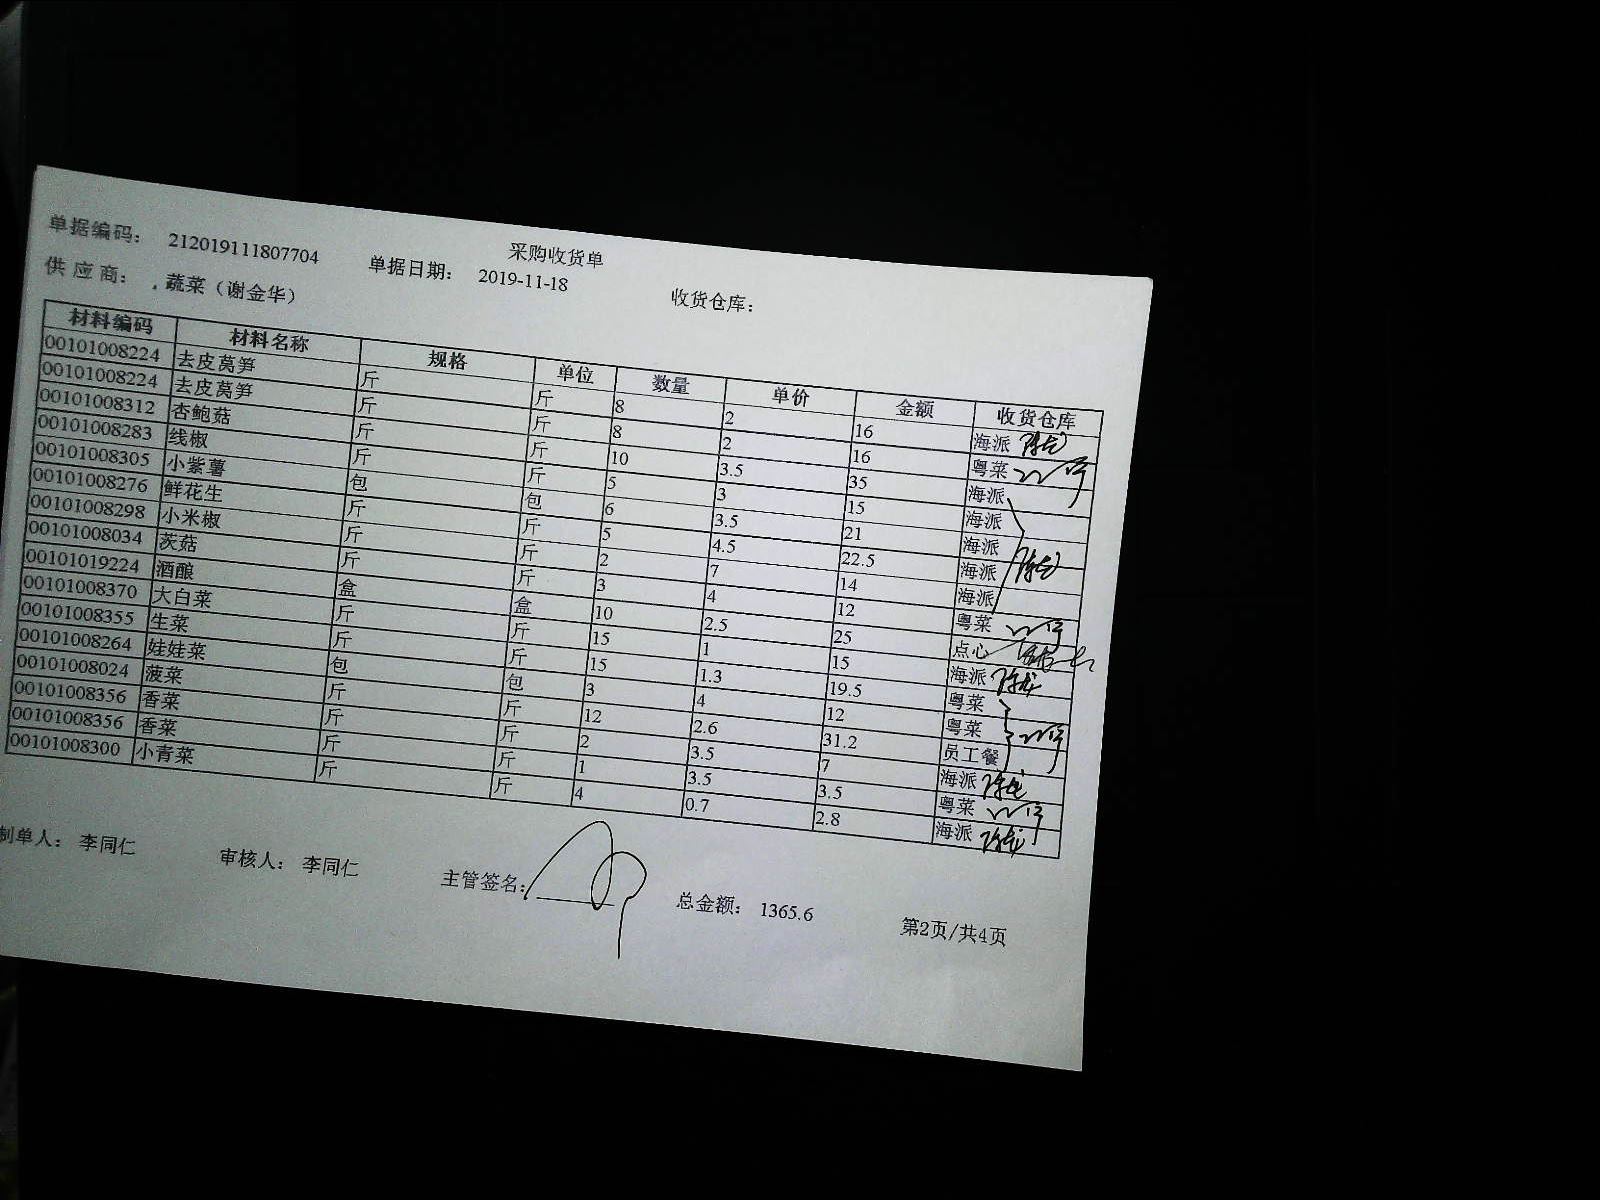 采购收货单
单据编码： 212019111807704 单据日期： 2019-11-18 收货仓库：
供应商： .蔬菜（谢金华）
材料编码 材料名称 规格 单位 数量 单价 金额 收货仓库
00101008224 去皮莴笋 斤 斤 8 2 16 海派
00101008224 去皮莴笋 斤 斤 8 2 16 粤菜
00101008312 杏鲍菇 斤 斤 10 3.5 35 海派
00101008283 线椒 斤 斤 5 3 15 海派
00101008305 小紫薯 包 包 6 3.5 21 海派
00101008276 鲜花生 斤 斤 5 4.5 22.5 海派
00101008298 小米椒 斤 斤 2 7 14 海派
00101008034 茨菇 斤 斤 3 4 12 粤菜
00101019224 酒酿 盒 盒 10 2.5 25 点心
00101008370 大白菜 斤 斤 15 1 15 海派
00101008355 生菜 斤 斤 15 1.3 19.5 粤菜
00101008264 娃娃菜 包 包 3 4 12 粤菜
00101008024 菠菜 斤 斤 12 2.6 31.2 员工餐
00101008356 香菜 斤 斤 2 3.5 7 海派
00101008356 香菜 斤 斤 1 3.5 3.5 粤菜
00101008300 小青菜 斤 斤 4 0.7 2.8 海派
制单人： 李同仁 审核人： 李同仁 主管签名： 总金额： 1365.6 第2页/共4页